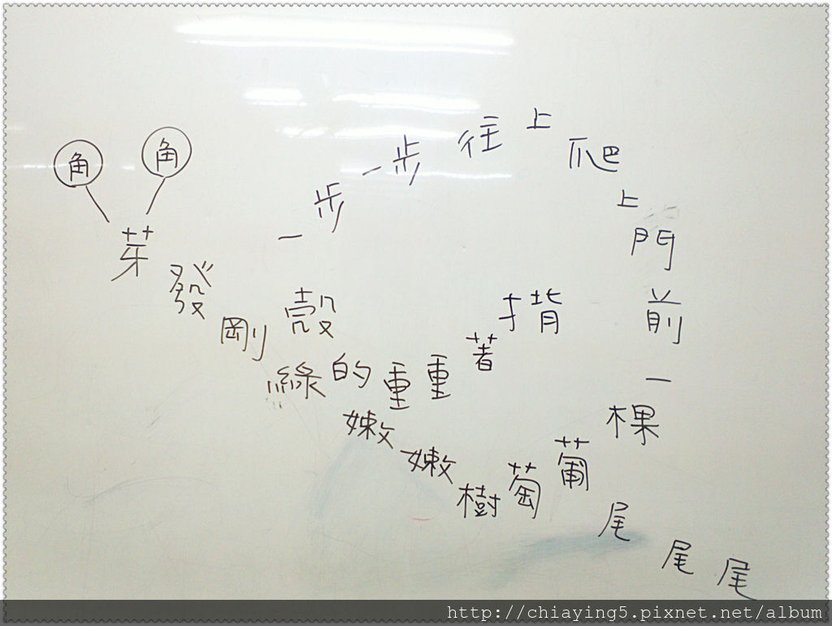 角 角
揹著重重的殼
一步一步往上爬上門前一棵葡萄樹嫩嫩綠剛發芽
尾尾尾
http://chiaying5.pixnet.net/album